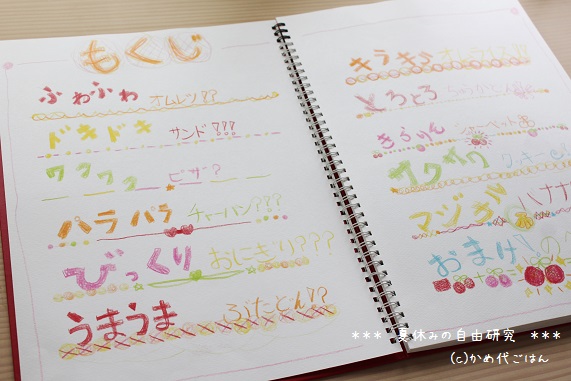 もくじ
ふわふわ オムレツ??
ドキドキ サンド???
ワクワク ピザ?
パラパラ チャーハン???
びっくり おにぎり???
うまうま ぶたどん!?
キラキラ オムライス??
とろとろ
きらりん シャーベット
サクサク クッキー
マジカル バナナ
おまけ の
*** 夏休みの自由研究 ***
(c)かめ代ごはん